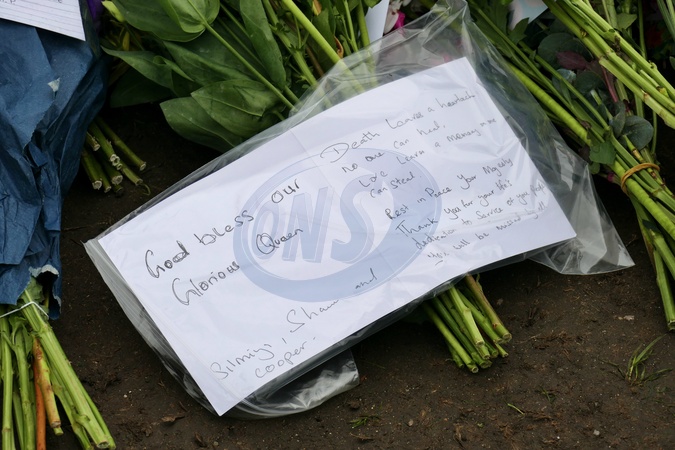 Good bless our
Glorious Queen
ONS
Death Leaves a heartache
no one can heal.
Love Leave a memory no one
can steal
Rest in Peace Your Majesty
Thank you for your life's
dedication to service of your
You will be missed
Shaun and
Cooper.